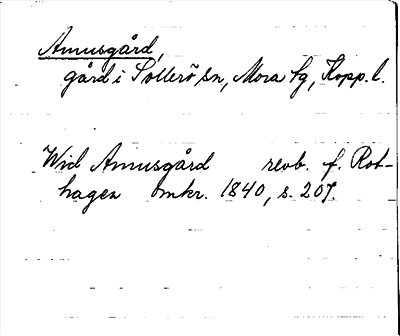 Amusgård,
gård i Sollerö sn, Mora tg, Kopp. l.
Wid Amusgård revb. f. Rot-
hagen omkr. 1840, s. 207.